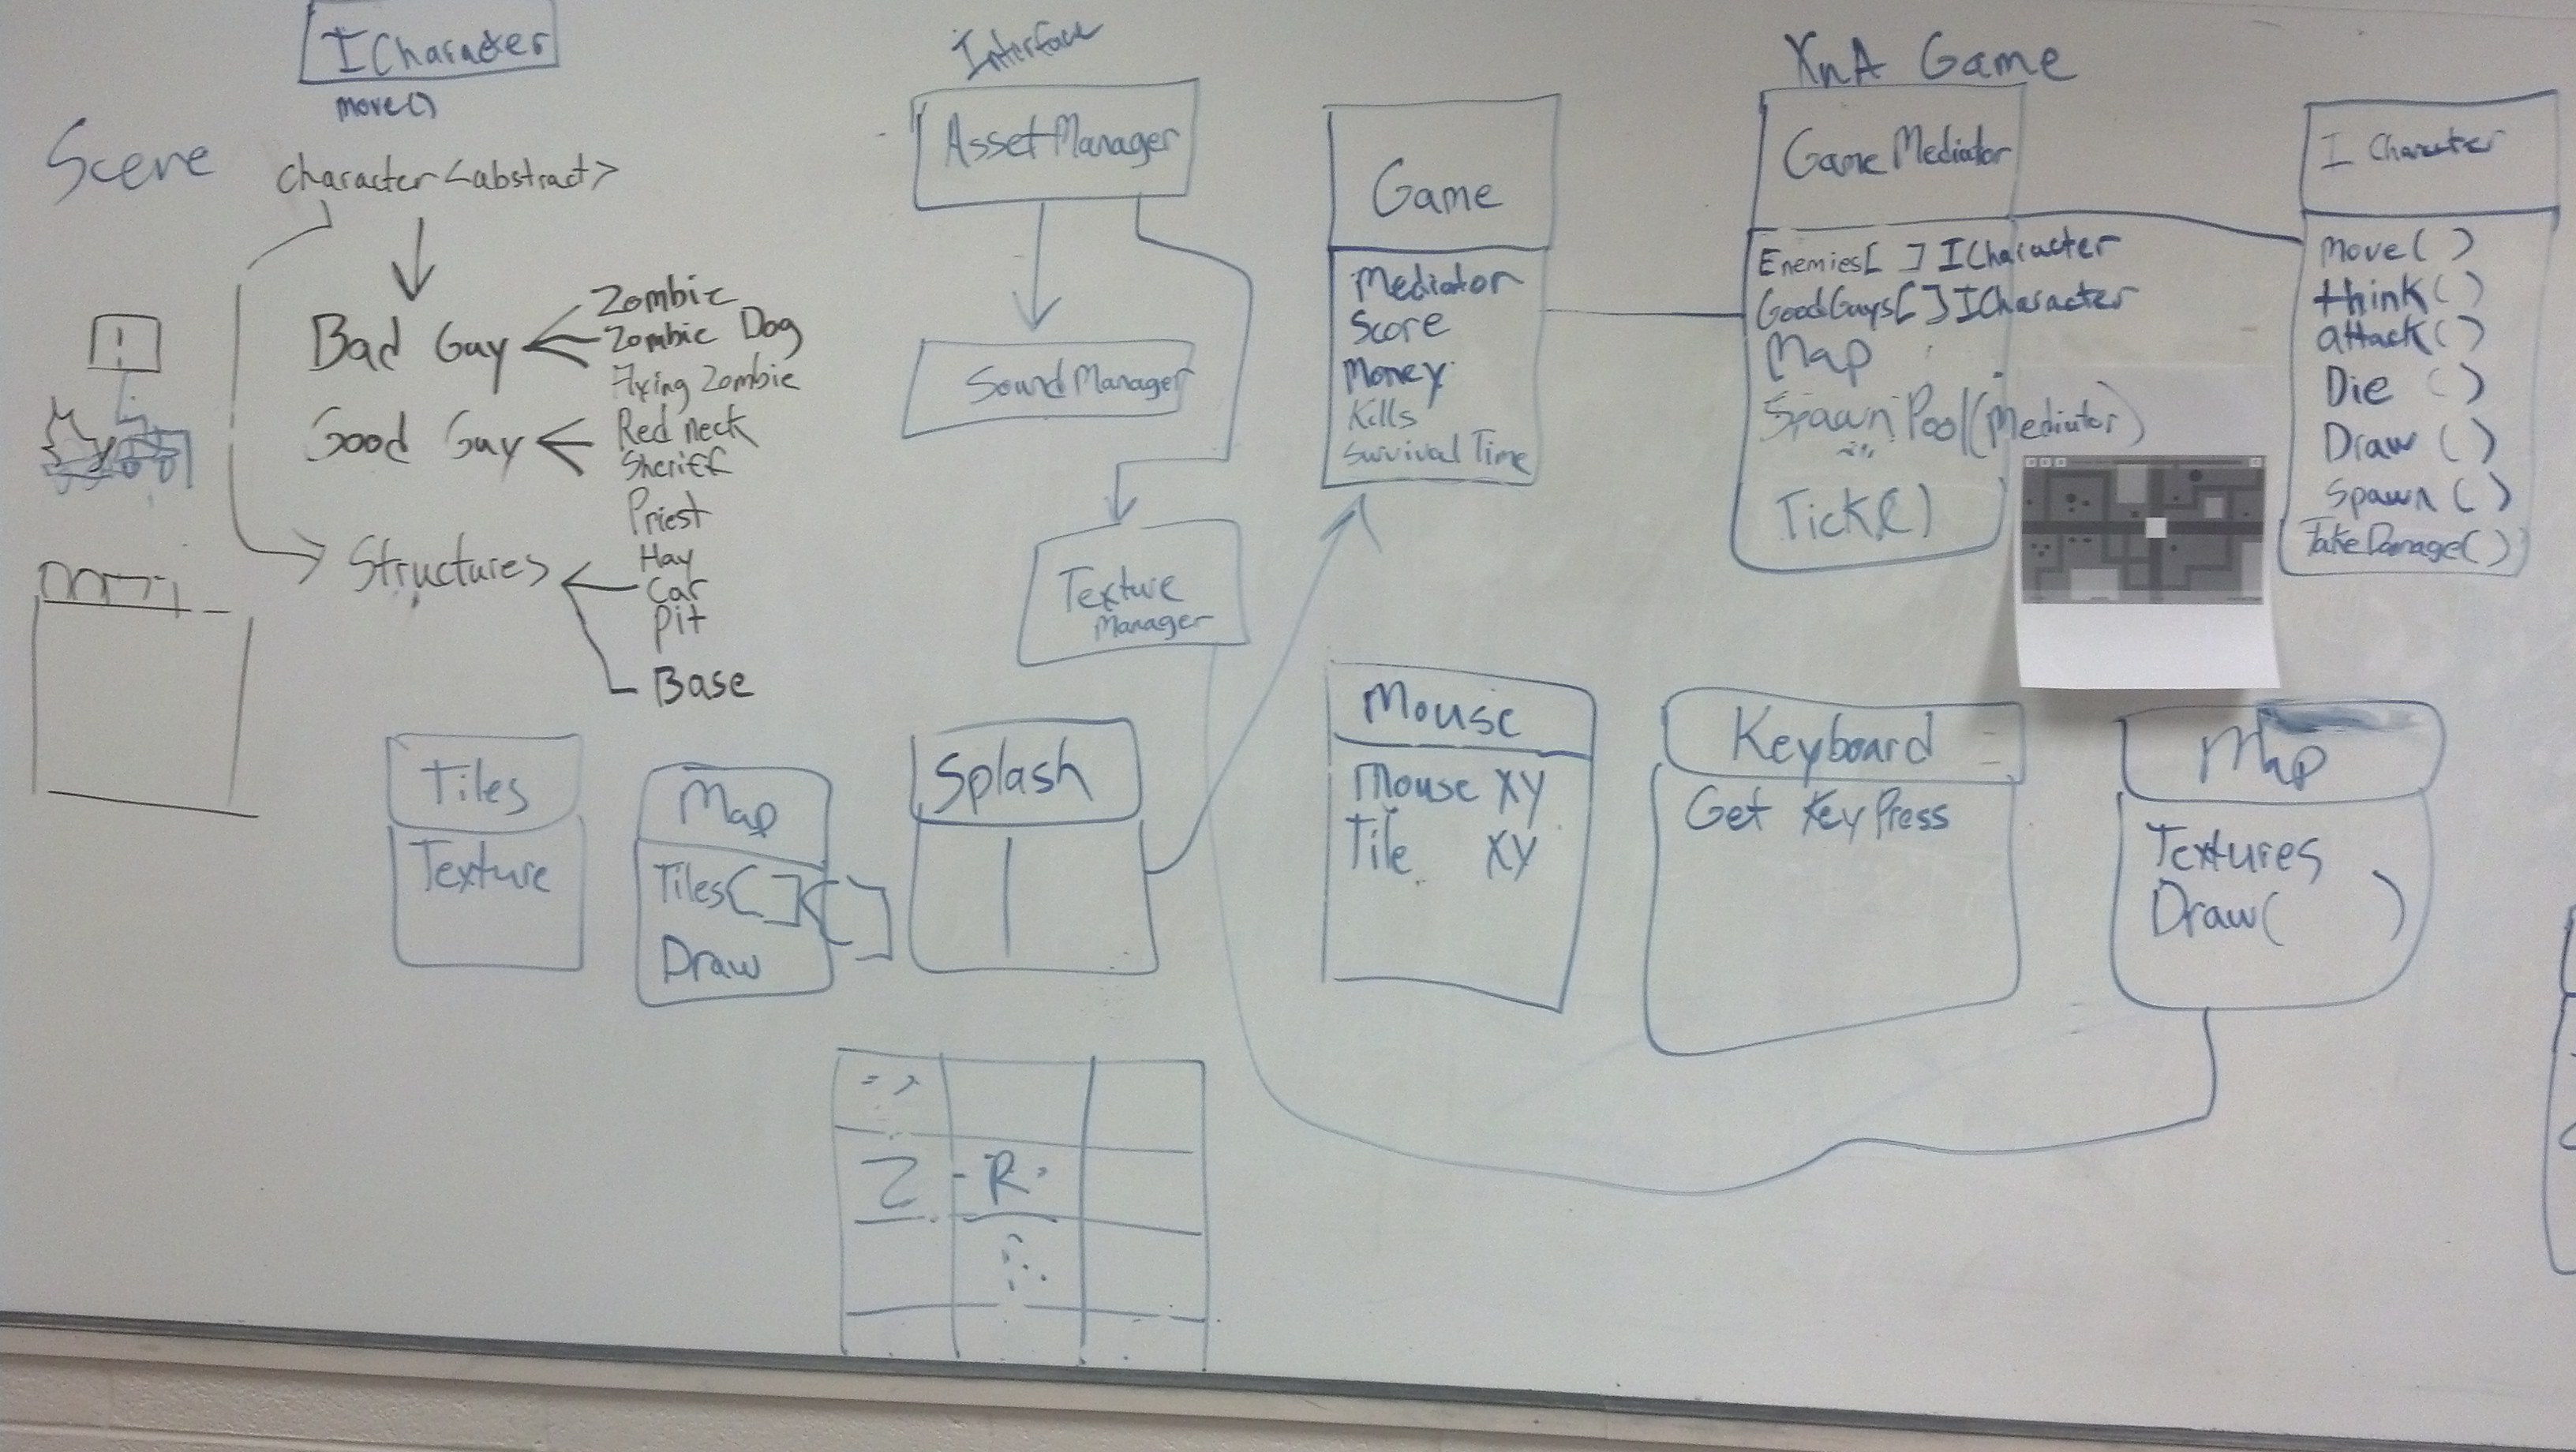 ICharacter
move()
Scene
character <abstract>
Bad Guy
Zombie
Zombie Dog
Flying Zombie
Good Guy
Red neck
Sheriff
Priest
Structures
Hay
Car
Pit
Base
Interface
AssetManager
SoundManager
Texture
Manager
Game
Mediator
Score
Money
Kills
Survival Time
XnA Game
GameMediator
Enemies[ ] ICharacter
GoodGuys[ ] ICharacter
Map
SpawnPool(Mediator)
Tick()
I Character
Move( )
think( )
attack( )
Die ( )
Draw ( )
Spawn ( )
TakeDamage( )
Tiles
Texture
Map
Tiles[ ][ ]
Draw
Splash
Mouse
Mouse XY
Tile XY
Keyboard
Get KeyPress
Map
Textures
Draw( )
Z
R